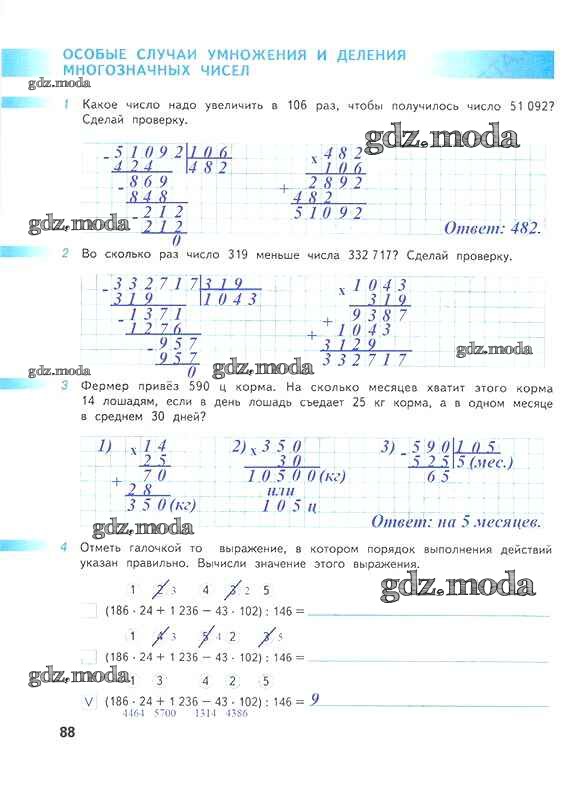 ОСОБЫЕ СЛУЧАИ УМНОЖЕНИЯ И ДЕЛЕНИЯ
МНОГОЗНАЧНЫХ ЧИСЕЛ
gdz.moda
1 Какое число надо увеличить в 106 раз, чтобы получилось число 51 092?
Сделай проверку.
gdz.moda
- 5 1 0 9 2 | 1 0 6 x 4 8 2
4 2 4 4 8 2 1 0 6
- 8 6 9 + 2 8 9 2
8 4 8 4 8 2
- 2 1 2 5 1 0 9 2
gdz.moda
2 1 2
0
Ответ: 482.
2 Во сколько раз число 319 меньше числа 332 717? Сделай проверку.
- 3 3 2 7 1 7 | 3 1 9 x 1 0 4 3
3 1 9 1 0 4 3 3 1 9
- 1 3 7 1 + 9 3 8 7
1 2 7 6 1 0 4 3
- 9 5 7 3 1 2 9
9 5 7 3 3 2 7 1 7
0
gdz.moda
gdz.moda
gdz.moda
3 Фермер привёз 590 ц корма. На сколько месяцев хватит этого корма
14 лошадям, если в день лошадь съедает 25 кг корма, а в одном месяце
в среднем 30 дней?
1) x 1 4 2) x 3 5 0 3) - 5 9 0 | 1 0 5
2 5 3 0 5 2 5 5 (мес.)
+ 7 0 1 0 5 0 0 (кг) 6 5
2 8 или
3 5 0 (кг) 1 0 5 ц
Ответ: на 5 месяцев.
gdz.moda
4 Отметь галочкой то выражение, в котором порядок выполнения действий
указан правильно. Вычисли значение этого выражения.
gdz.moda
1 2 3 4 3 2 5
(186 · 24 + 1 236 − 43 · 102) : 146 =
1 4 3 5 4 2 3 5
(186 · 24 + 1 236 − 43 · 102) : 146 =
gdz.moda
1 3 4 2 5
V (186 · 24 + 1 236 − 43 · 102) : 146 = 9
4464 5700 1314 4386
88